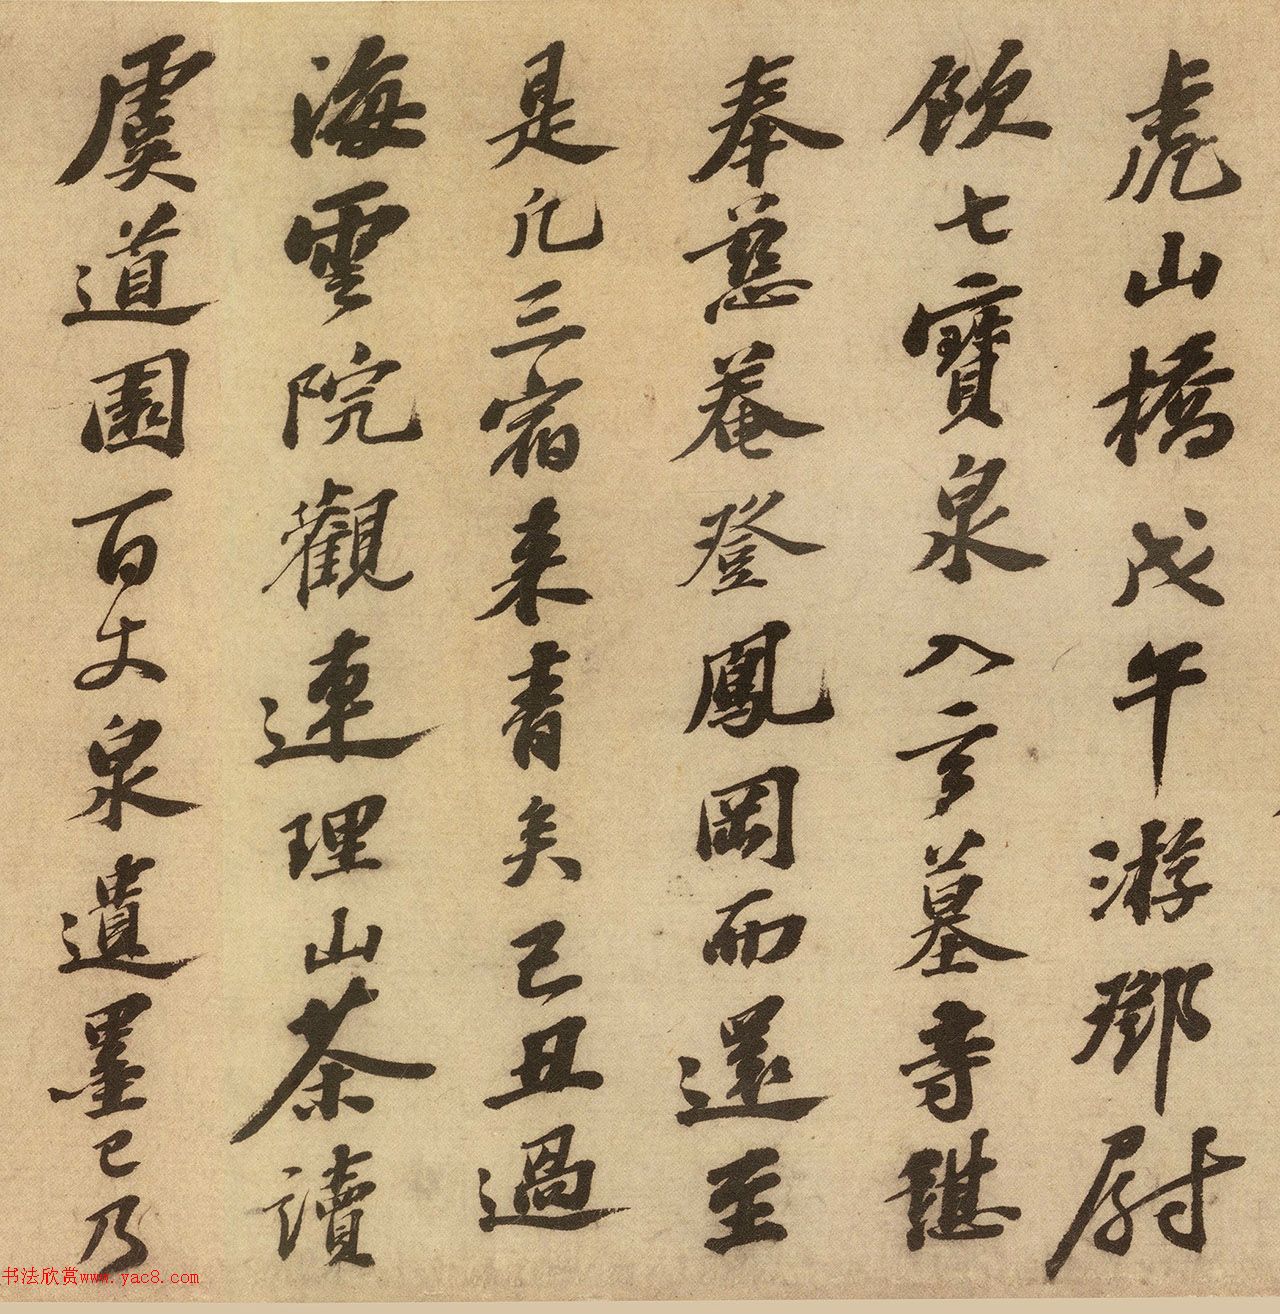 虎山橋戊午游鄧尉
飲七寶泉入玄墓寺
奉慈菴登鳳岡而還至
是凡三宿来青矣己丑過
海雲院觀連理山茶讀
虞道園百丈泉遺墨已乃
书法欣赏www.yac8.com